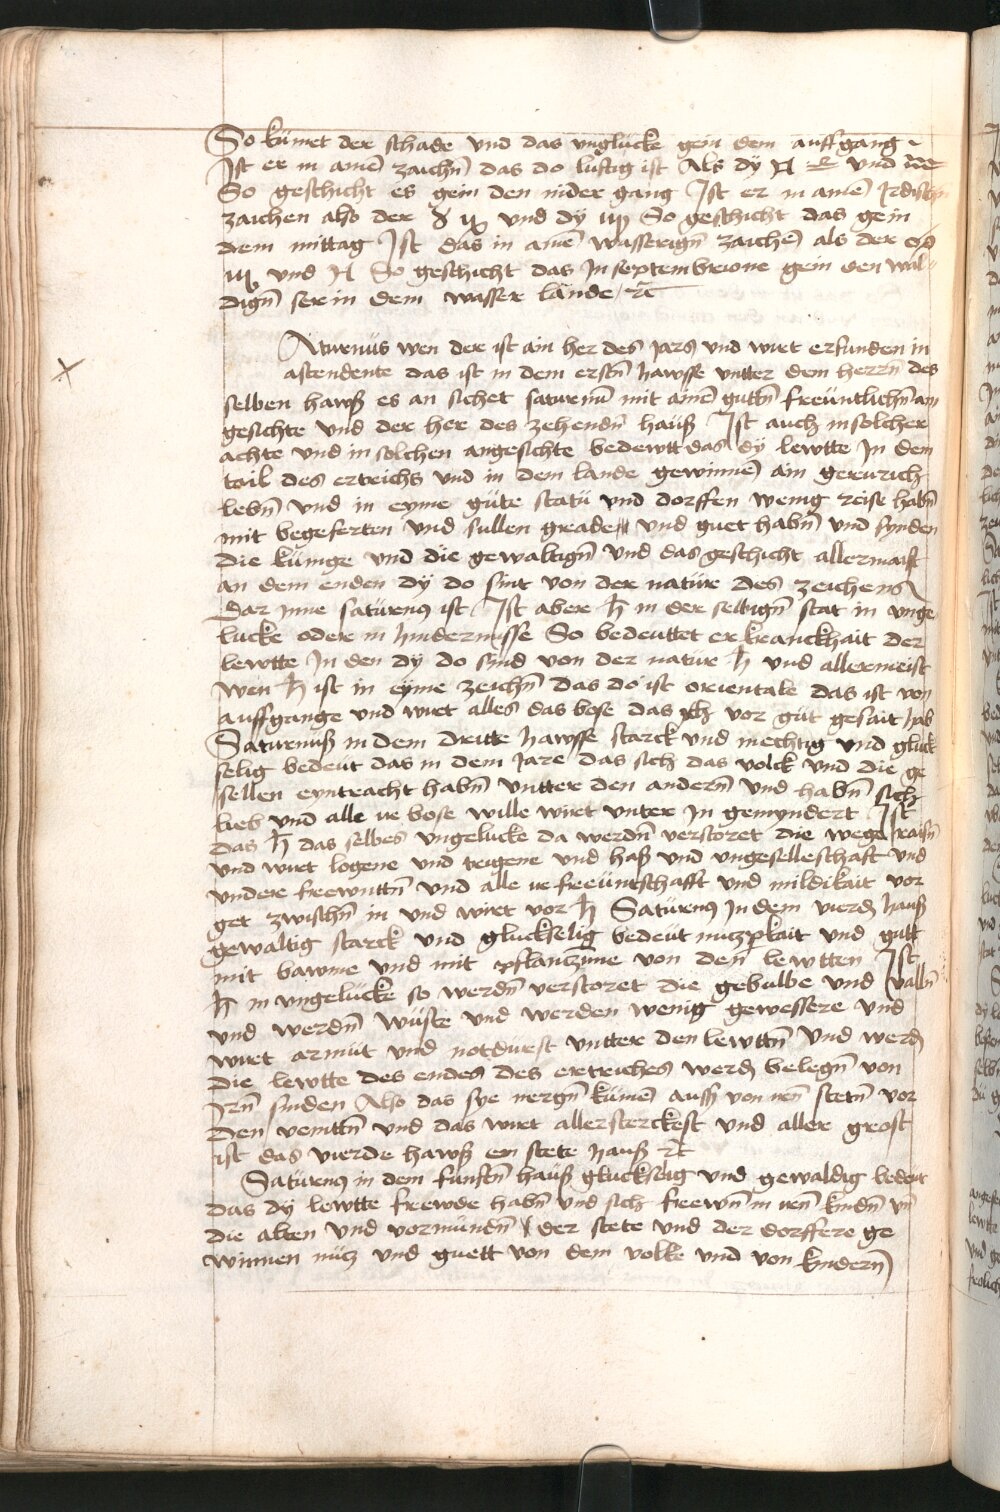 So kümet der schade vnd das vnglücke gein dem auffgang
Ist er in ainē zaichn̄ das do luftig ist Als dÿ ♊ ♎ vnd ♒
So geschicht es gein den nider gang Ist er in ainē Irdischn̄
zaichen also der ♉ ♑ vnd dÿ ♍ So geschicht das gein
dem mittag Ist das in ainē wasserign̄ zaichē als der ♋
♏ vnd ♓ So geschicht das In septembrione gein den wal
dign̄ ser in dem wasser lande ꝛc̄
Aturnüs wen der ist ain her des Jars vnd wirt erfunden in
ascendente das ist in dem erstn̄ hawsse vntter dem herrn̄ des
selben hawß es an sichet saturnū mit ainē guttn̄ freüntlichn̄ an
gesichte vnd der her des zehendn̄ hauß Ist auch in solcher
achte vnd in solchen angesichte bedewtt das dÿ lewtte In dem
tail des ertreichs vnd in dem lande gewinnē ain gereurich
lebn̄ vnd in eyme güte statü vnd dorffen wenig reise habn̄
mit begeferten vnd sullen greade vnd guet habn̄ vnd synden
die künige vnd die gewaltign̄ vnd das geschicht allermaist
an dem enden dÿ do sint von der natüre des zeichens
Dar Inne satürenꝰ ist Ist aber ♄ in der selbign̄ stat in vnge
lucke oder in hindernüsse So bedeuttet er kranckhait der
lewtte In den dÿ do sind von der natüre ♄ vnd allermeist
wen ♄ ist in eÿme zeichn̄ das do ist orientale das ist von
auffgange vnd wirt alles das bose das ich vor güt gesait hab
Saturnuß in dem dritte hawsse starck vnd mechtig vnd gluck
selig bedeut das in dem Jare das sich das volck vnd die ge
sellen eyntracht habn̄ vntter den andern̄ vnd habn̄ sich
lieb vnd alle ir bose wille wirt vnter In gemyndert Ist
das ♄ das selbes vngelucke da werdn̄ verstoret die wege raisn̄
vnd wirt logene vnd trigene vnd haß vnd vngeselleschaft vnd
vndere frewnttn̄ vnd alle ir freüntschafft vnd mildikait vor
get zwischn̄ in vnd wirt vor ♄ Satürenꝰ In dem vierdn̄ hauß
gewaltig starck vnd gluckselig bedeut nutzperkait vnd gutt
mit bawme vnd mit pflantzüne von den̄ lewtten Ist
♄ in vngelücke so werdn̄ verstoret die gebulbe vnd valln̄
vnd werdn̄ wüste vnd werden wenig gewessere vnd
wirt armüt vnd notdurft vntter den lewttn̄ vnd werdn̄
die lewtte des endes des ertreiches werdn̄ belegn̄ von
Irn̄ finden Also das sye nergn̄ kümē auß von iren̄ stetn̄ vor
den veinttn̄ vnd das wirt allersterckest vnd aller grost
ist das vierde hawß ein stete hauß ꝛc̄
Satürenꝰ in dem funftn̄ hauß gluckselig vnd gewaldig bedeut
das dÿ lewtte frewde habn̄ vnd sich frewn̄ in iren̄ kindn̄ vn̄
die alten vnd vormündn̄ der stete vnd der dorffere ge
winnen nutz vnd guett von dem volke vnd von kindern̄